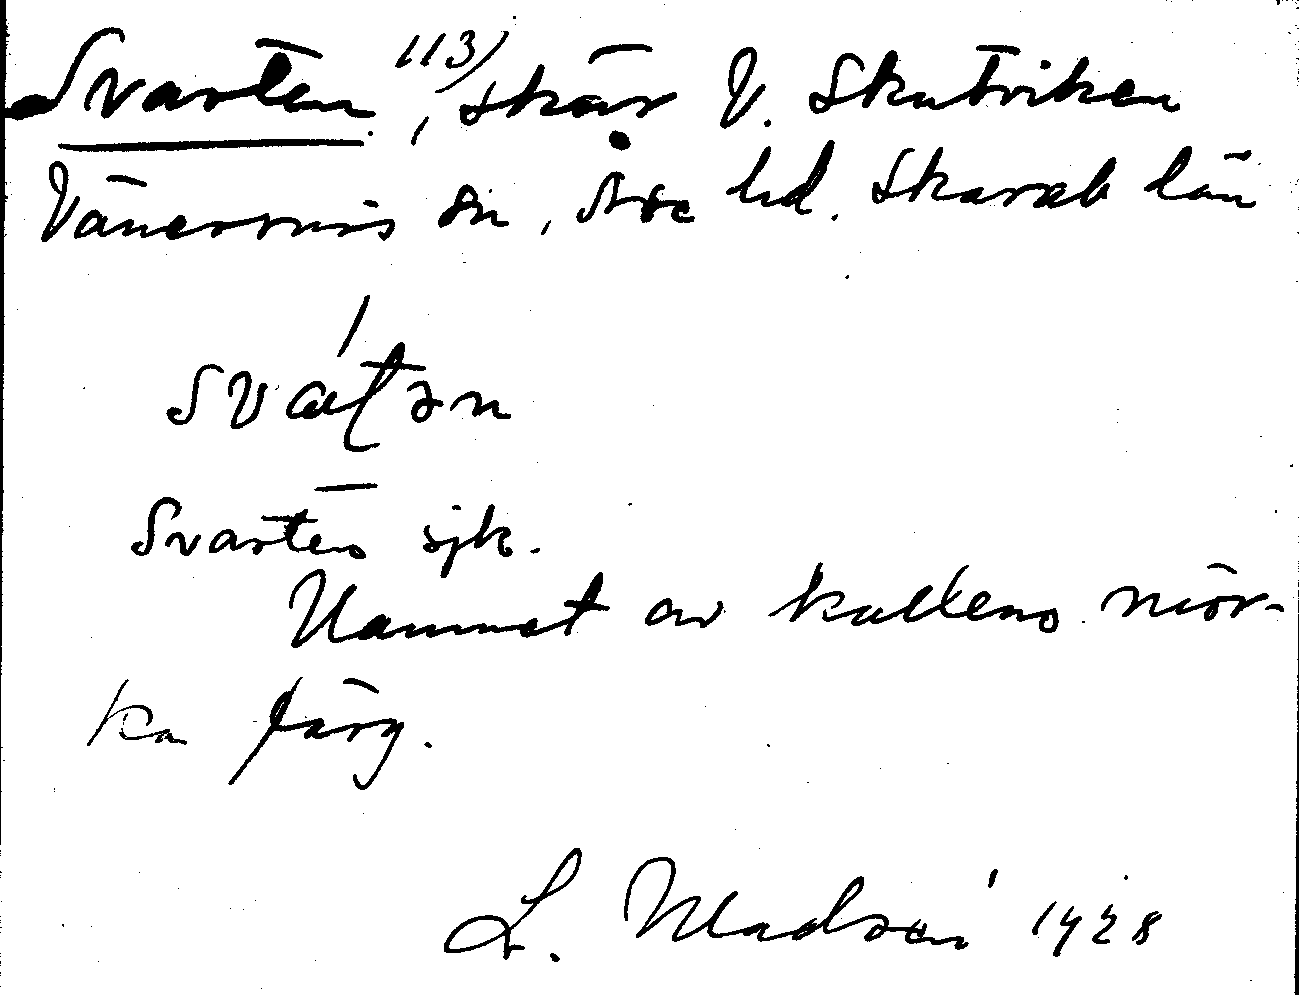 Svarten 113), skär V. Skutviken
Vänersnäs sn, Åse hd. Skarab län
svat̨ən
Svarten sjk.
Namnet av hallens mör-
ka färg.
L. Madsén 1928